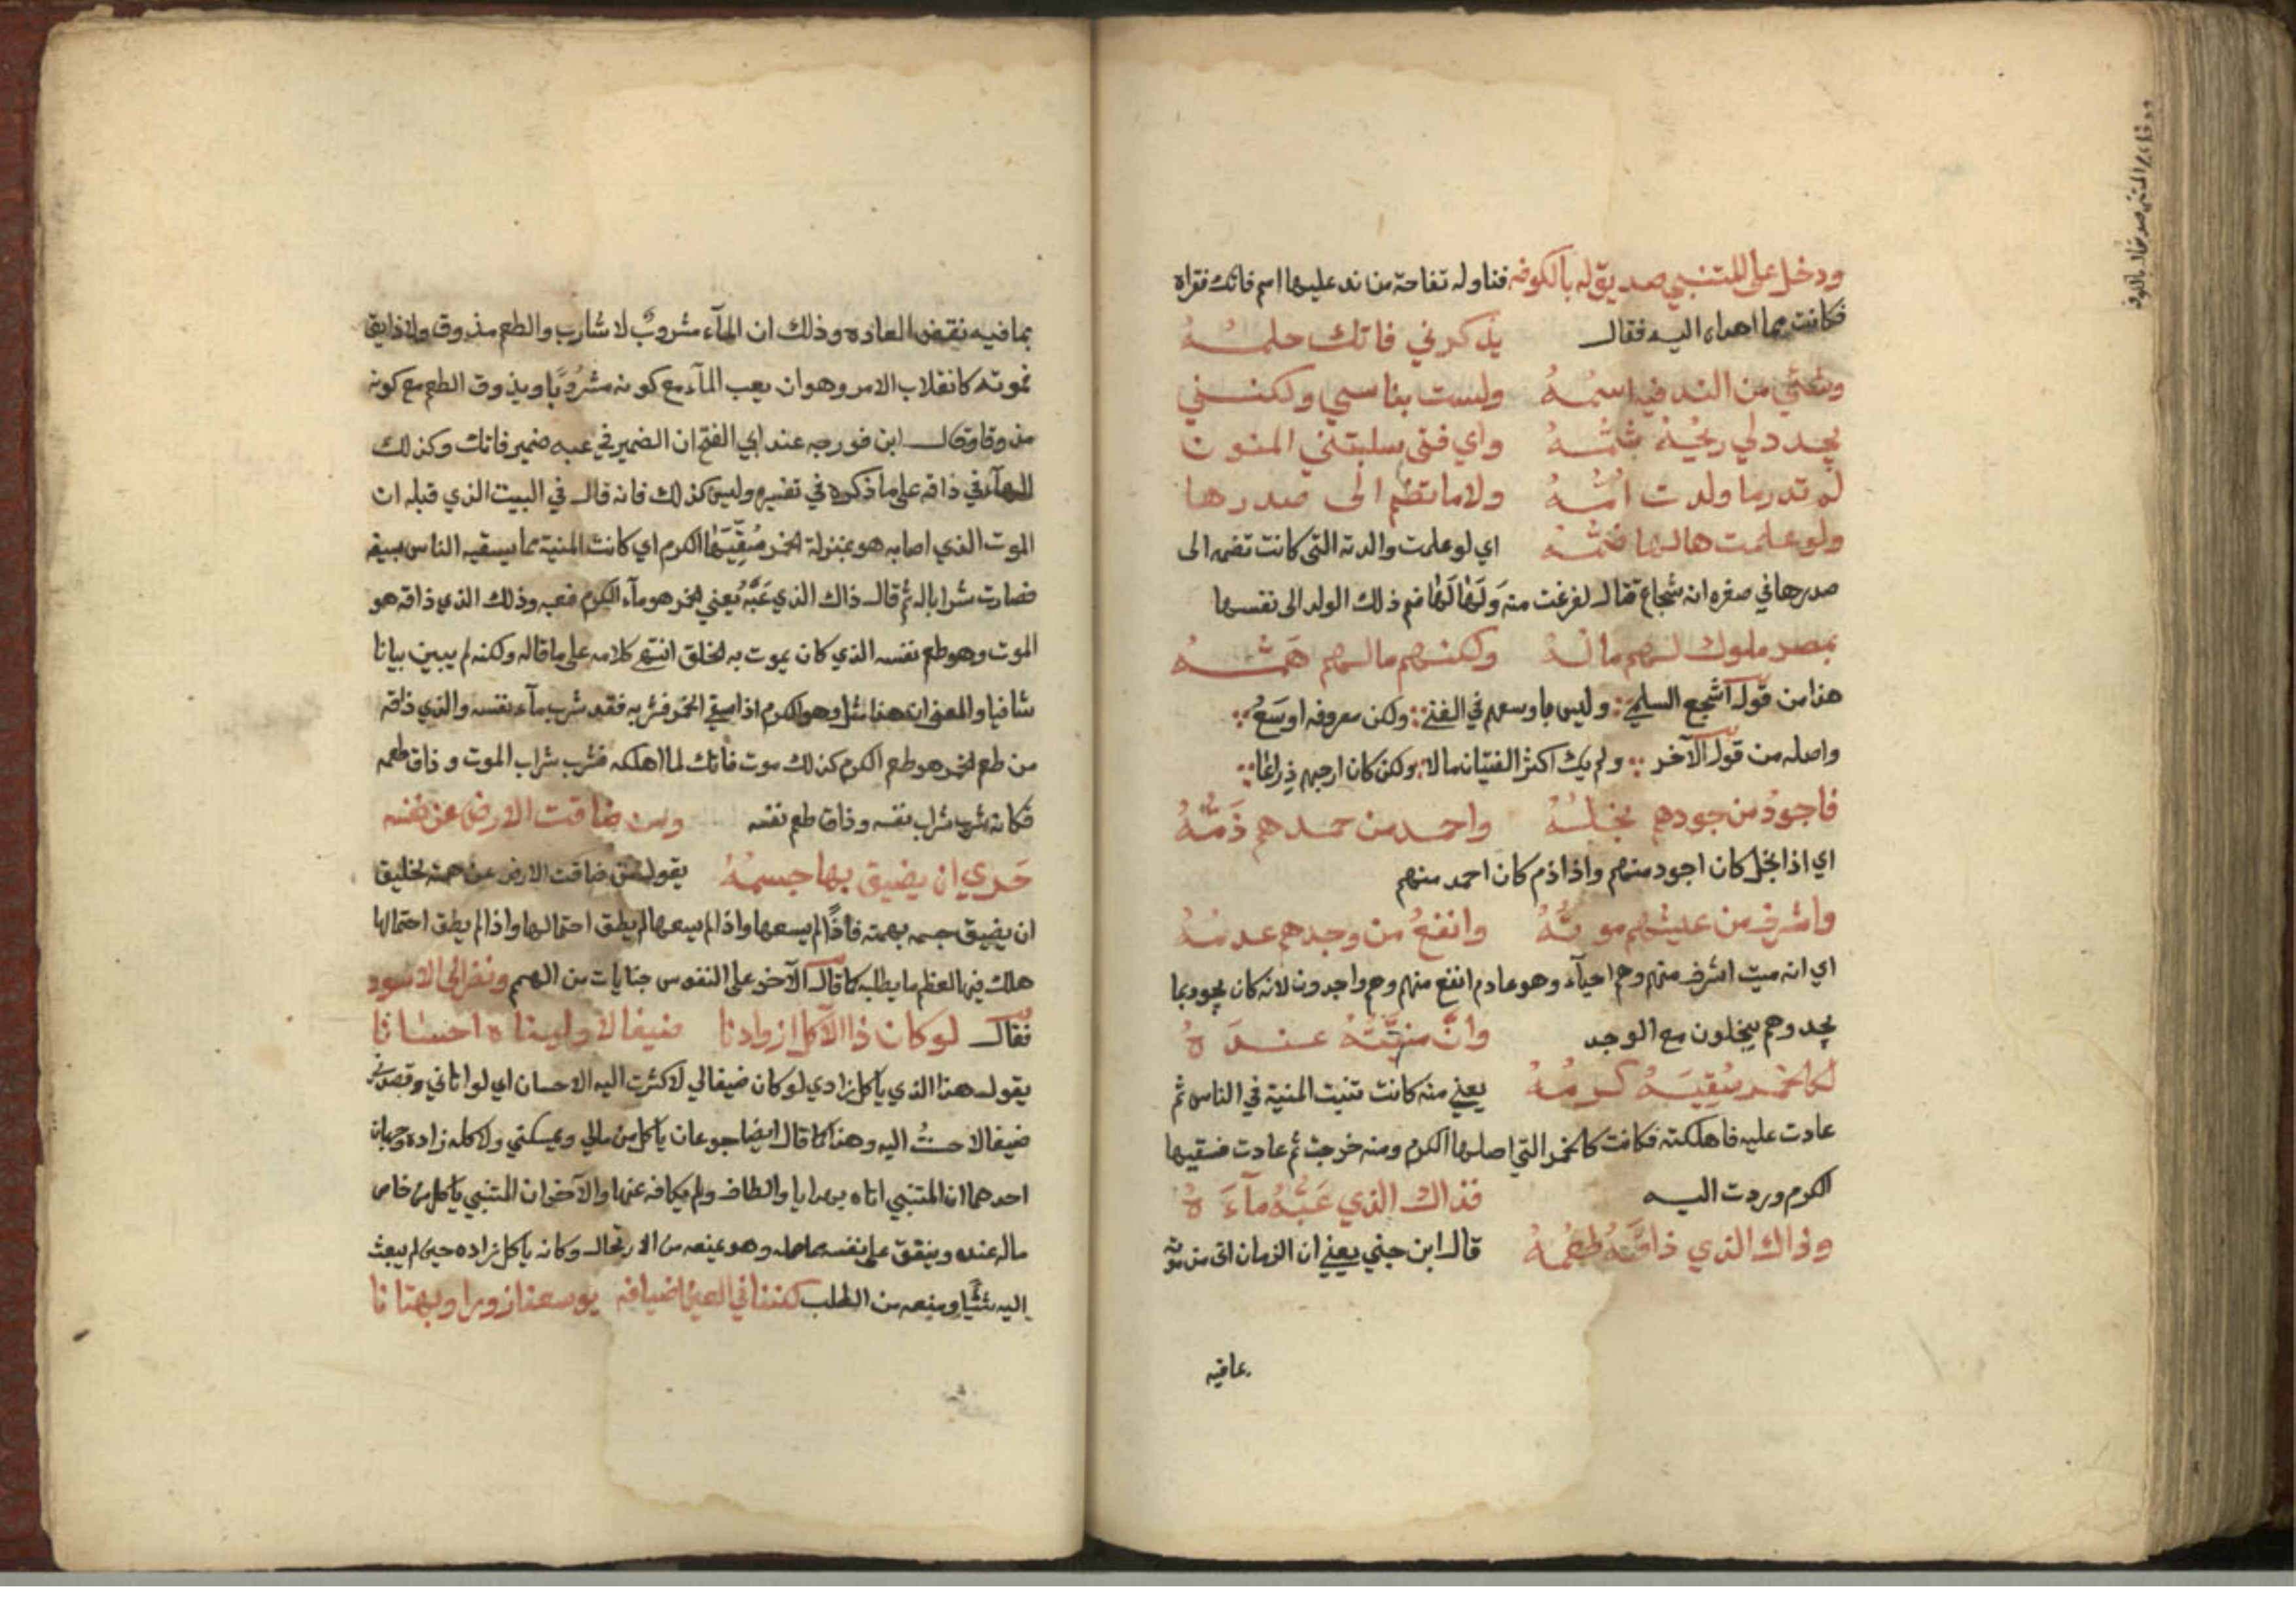 ودخل على المتنبي صديق له بالكوفه فناوله تفاحة من ند عليها اسم فاتك فقراه
فكانت مما اهداه اليه فقال يذكرني فاتك حلمــهُ
وشئي من الند فيه اسمُــهُ ولست بناسي ولكنــني
يجدد لي ريحَهُ شَمُّــهُ واي فتى سلبتني المنون
لم تدر ما ولدت امُّــهُ ولا ما تضم الى صدرها
ولو علمت هالها ضمُّــه اي لو علمت والدته التى كانت تضمه الى
صدرها في صغره انه شجاع قتال لفزعت منه وَلَهَالَهَا ضم ذلك الولد الى نفسها
بمصر ملوك لهم مالُــهُ ولكنهم مالهم هَمُّــهُ
هذا من قول اشجع السلمي وليس باوسعهم في الغنى ولكن معروفه اوسَعُ
واصله من قول الآخر ولم يك اكثر الفتيان مالا ولكن كان ارحبهم ذراعًا
فاجودُ من جودهم بخلُــهُ واحمد من حمدهم ذَمُّــهُ
اي اذا بخل كان اجود منهم واذا ذم كان احمد منهم
واشرف من عيشهم موتُــهُ وانفعُ من وجدهم عدمُــهُ
اي انه ميت اشرف منهم وهم احيآء وهو عادم انفع منهم وهم واجدون لانه كان يجود بما
يجد وهم يبخلون مع الوجد وانَّ منيَّتَهُ عنــدَهُ
لكالخمر سُقِيَــهُ كرمُــهُ يعني منه كانت تنبث المنية في الناس ثم
عادت عليه فاهلكته فكانت كالخمر التي اصلها الكرم ومنه خرجت ثم عادت فسقيها
الكرم وردت اليــه فذاك الذي عَبَّهُ مآءَهُ
وذاك الذي ذاقَــهُ طعمُــهُ قال ابن جني يعني ان الزمان اتى من موته
بما فيه نقض العاده وذلك ان المآء مشروبٌ لا شارب والطعم مذوق ولا ذايق
فموته كانقلاب الامر وهو ان يعب المآء مع كونه مشروبًا ويذوق الطعم مع كونه
مذوقا وقال ابن فورجه عند ابي الفتح ان الضمير في عبه ضمير فاتك وكذلك
الهآء في ذاقه على ما ذكره في تفسيره وليس كذلك فانه قال في البيت الذي قبله ان
الموت الذي اصابه هو بمنزلة الخمر سُقِّيَهَا الكرم اي كانت المنية مما يسقيه الناس بسيفه
فصارت شرابا له ثم قال ذاك الذي عَبَّهُ يعني الخمر هو مآء الكرم فعبه وذلك الذي ذاقه هو
الموت وهو طعم نفسه الذي كان يموت به الخلق انتهى كلامه على ما قاله ولكنه لم يبين بيانا
شافيا والمعنى ان هذا مثل وهو الكرم اذا سقي الخمر فشربه فقد شرب مآء نفسه والذي ذاقه
من طعم الخمر هو طعم الكرم كذلك موت فاتك لما اهلكه فشرب شراب الموت وذاق طعمه
فكانه شرب شراب نفسه وذاق طعم نفسه ومن ضاقت الارض عن نفسه
حَرِي ان يضيق بها جسمُــهُ يقول من ضاقت الارض عن همته لخليق
ان يضيق جسمه بهمته فاذًا لم يسعها واذا لم يسعها لم يطق احتمالها واذا لم يطق احتمالها
هلك فيها لعظم ما يطلبه كما قال الآخر على النفوس جنايات من الهمم ونظر الى الاسود
فقال لو كان ذا الآكل ازوادنا ضيفا لاوليناه احسانا
يقول هذا الذي ياكل زادي لو كان ضيفا لي لاكثرت اليه الاحسان اي لو اتاني وقصدني
ضيفا لاحسنتُ اليه وهذا كما قال ايضا جوعان ياكل من مالي ويمسكني ولاكله زاده وجهان
احدهما ان المتنبي اتاه بهدايا والطاف ولم يكافه عنها والآخر ان المتنبي ياكل من خاص
ماله عنده وينفق على نفسه مما حمله وهو يمنعه من الارتحال وكانه ياكل زاده حين لم يبعث
اليه شيًا ومنعه من الطلب لكننا في العين اضيافه يوسعنا زورا وبهتانا